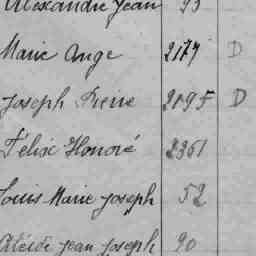 Alexandre Jean 93
Marie Ange 2177 D
Joseph Pierre 2195 D
Félix Honoré 2361
Louis Marie Joseph 52
Jean Joseph 90